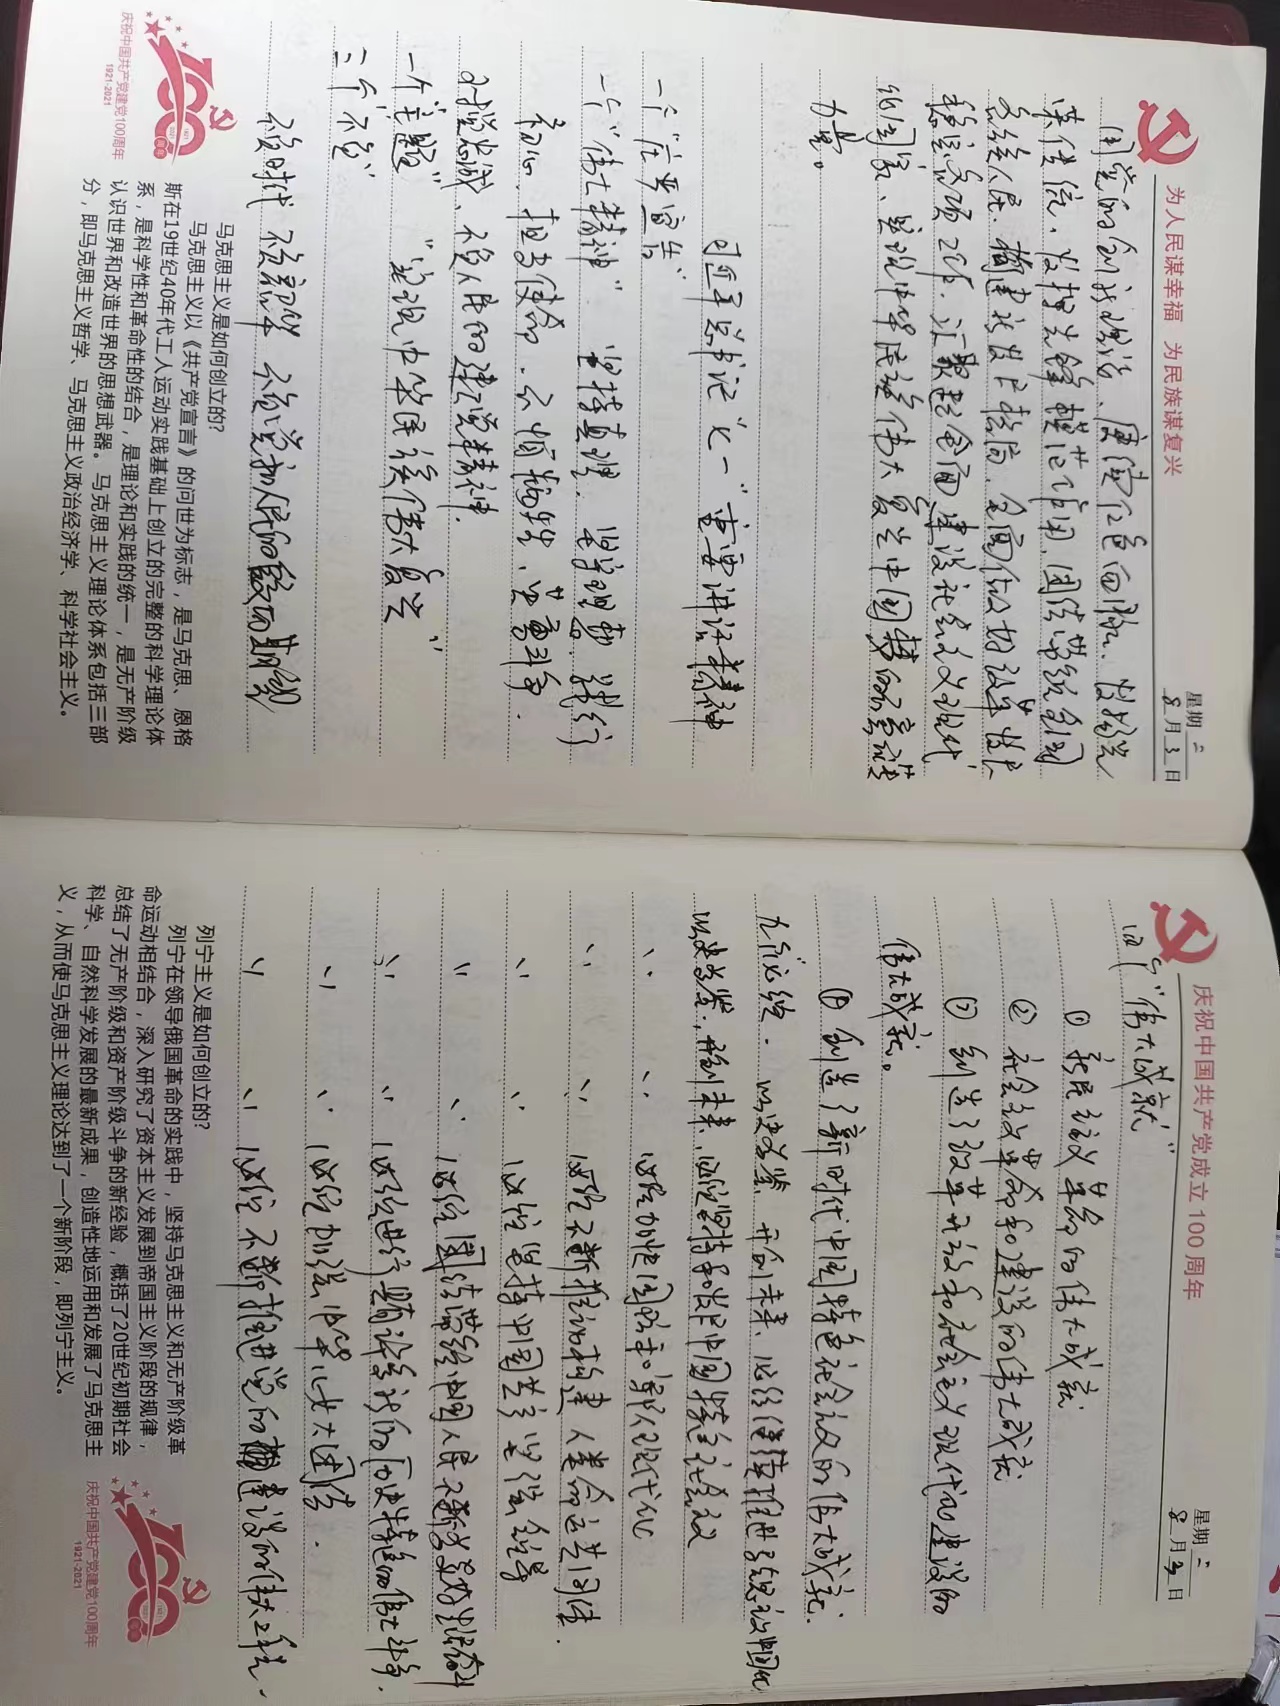 为人民谋幸福 为民族谋复兴
星期二
8月3日
用党的创新理论、
优良传统，发扬先锋模范作用，团结带领全国
各族人民，构建新发展格局，全面深化改革
稳定各项工作，汇聚起全面建设社会主义现代
化国家、实现中华民族伟大复兴中国梦的
力量。
习近平总书记“七一”重要讲话精神
一个“庄严宣告”
一个“伟大精神” 坚持真理、坚守理想，践行
初心、担当使命，不怕牺牲、英勇斗争，
对党忠诚、不负人民的建党精神。
一个“主题” “实现中华民族伟大复兴”
三个“不负”
不负时代 不负韶华 不负党和人民的殷切期望
马克思主义是如何创立的?
马克思主义以《共产党宣言》的问世为标志，是马克思、恩格
斯在19世纪40年代工人运动实践基础上创立的完整的科学理论体
系，是科学性和革命性的结合，是理论和实践的统一，是无产阶级
认识世界和改造世界的思想武器。马克思主义理论体系包括三部
分，即马克思主义哲学、马克思主义政治经济学、科学社会主义。
100
周年
庆祝中国共产党建党100周年
1921-2021
庆祝中国共产党成立100周年
星期二
8月3日
四个“伟大成就”
① 新民主主义革命的伟大成就
② 社会主义革命和建设的伟大成就
③ 创造了改革开放和社会主义现代化建设的
伟大成就。
④ 创造了新时代中国特色社会主义的伟大成就.
九个“必须” 以史为鉴、开创未来、必须继续推进马克思主义中国化
以史为鉴、开创未来、必须坚持和发展中国特色社会主义
〃 〃 必须加快国防和军队现代化
〃 〃 必须不断推动构建人类命运共同体.
〃 〃 必须坚持中国共产党坚强领导
〃 〃 必须团结带领中国人民不断为美好生活奋斗
〃 〃 必须进行具有许多新的历史特点的伟大斗争.
〃 〃 必须加强中华儿女大团结.
〃 〃 必须不断推进党的建设的伟大工程.
列宁主义是如何创立的?
列宁在领导俄国革命的实践中，坚持马克思主义和无产阶级革
命运动相结合，深入研究了资本主义发展到帝国主义阶段的规律，
总结了无产阶级和资产阶级斗争的新经验，概括了20世纪初期社会
科学、自然科学发展的最新成果，创造性地运用和发展了马克思主
义，从而使马克思主义理论达到了一个新阶段，即列宁主义。
100
周年
庆祝中国共产党建党100周年
1921-2021